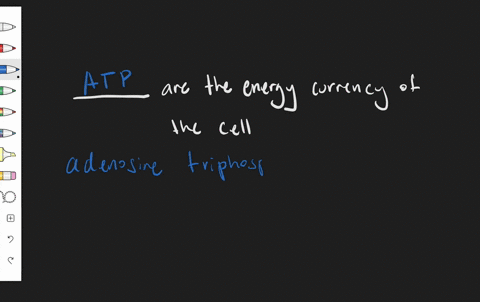 ATP are the energy currency of
the cell
adenosine triphosp